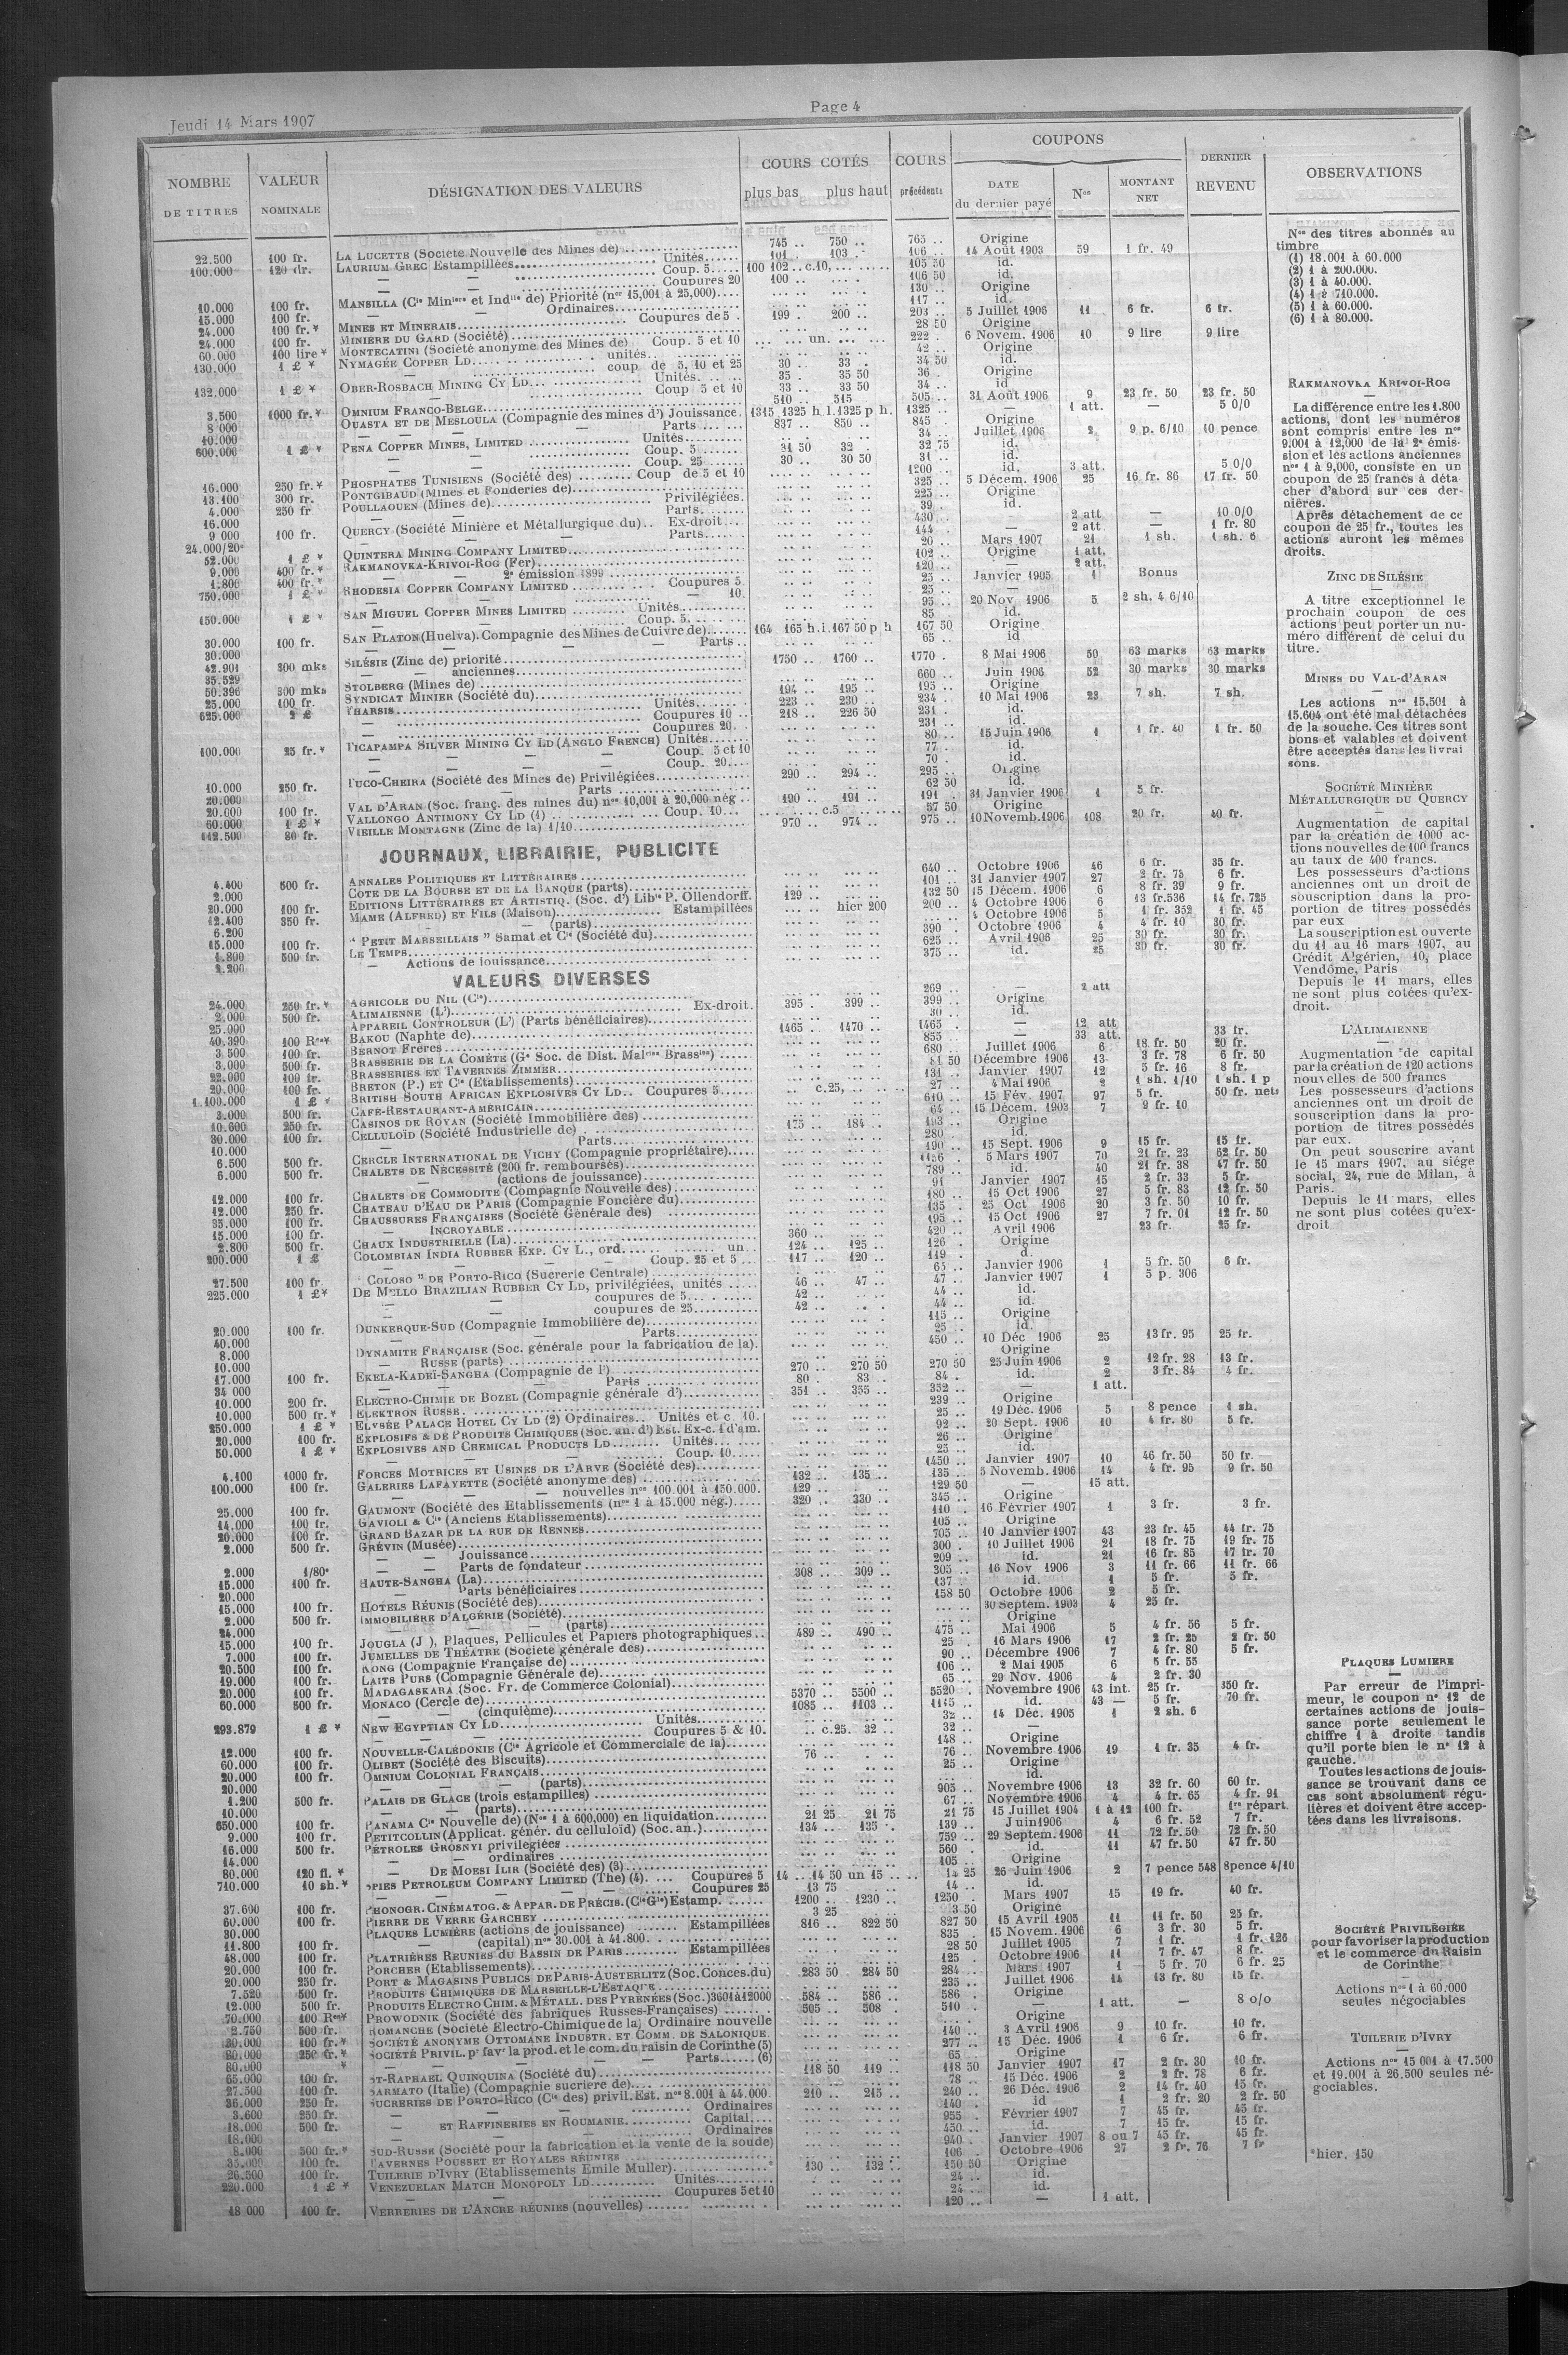 Jeudi 14 Mars 1907
Page 4
NOMBRE DE TITRES
VALEUR NOMINALE
DÉSIGNATION DES VALEURS
COURS COTÉS
plus bas plus haut
COURS précédents
COUPONS
DATE du dernier payé
Nos
MONTANT NET
DERNIER REVENU
OBSERVATIONS
22.500 100 fr. LA LUCETTE (Société Nouvelle des Mines de) 745 .. 750 .. 765 .. Origine
100.000 120 dr. LAURIUM GREC Estampillées Unités 101 . 103 . 106 .. 14 Août 1903 59 1 fr. 49
— — Coup. 5 100 102 .. c.10, 105 50 id.
— — Coupures 20 100 .. 106 50 id.
10.000 100 fr. MANSILLA (Cie Minière et Indlle de) Priorité (nos 15,001 à 25,000) 130 .. Origine
15.000 100 fr. — Ordinaires 117 .. id.
24.000 100 fr.* MINES ET MINERAIS Coupures de 5 199 . 200 .. 203 .. 5 Juillet 1906 11 6 fr. 6 fr.
24.000 100 fr. MINIÈRE DU GARD (Société) 28 50 Origine
60.000 100 lire * MONTECATINI (Société anonyme des Mines de) Coup. 5 et 10 un. 222 . 6 Novem. 1906 10 9 lire 9 lire
130.000 1 £ * NYMAGÉE COPPER LD unités 42 .. Origine
— coup de 5, 10 et 25 30 .. 33 . 34 50 id.
132.000 1 £ * OBER-ROSBACH MINING CY LD Unités 35 . 35 50 36 .. Origine
— Coup 5 et 10 33 .. 33 50 34 .. id
3.500 1000 fr.* OMNIUM FRANCO-BELGE 510 .. 515 505 .. 31 Août 1906 9 23 fr. 50 23 fr. 50
8 000 OUASTA ET DE MESLOULA (Compagnie des mines d') Jouissance 1315 1325 h.l.1325 p h. 1325 .. — 1 att. — 5 0/0
10.000 — — Parts 837 .. 850 .. 845 . Origine
600.000 1 £ * PENA COPPER MINES, LIMITED Unités 34 .. Juillet 1906 2 9 p. 6/10 10 pence
— — Coup. 5 31 50 32 32 75 id.
— — Coup. 25 30 .. 30 50 31 .. id.
16.000 250 fr.* PHOSPHATES TUNISIENS (Société des) Coup de 5 et 10 1200 .. id. 3 att. 5 0/0
13.100 300 fr. PONTGIBAUD (Mines et Fonderies de) 325 .. 5 Décem. 1906 25 16 fr. 86 17 fr. 50
4.000 250 fr POULLAOUEN (Mines de) Privilégiées. 225 .. Origine
16.000 — Parts 39 . id.
9 000 100 fr. QUERCY (Société Minière et Métallurgique du) Ex-droit 430 .. — 2 att — 10 0/0
24.000/20e — Parts 144 .. — 2 att. — 1 fr. 80
52.000 1 £ * QUINTERA MINING COMPANY LIMITED 20 .. Mars 1907 21 1 sh. 1 sh. 6
9.000 400 fr.* RAKMANOVKA-KRIVOI-ROG (Fer) 102 .. Origine 1 att.
1.800 400 fr.* — — 2e émission 1899 120 .. — 2 att.
750.000 1 £ * RHODESIA COPPER COMPANY LIMITED Coupures 5 25 .. Janvier 1905 1 Bonus
— — 10. 25 ..
150.000 1 £ * SAN MIGUEL COPPER MINES LIMITED Unités 95 .. 20 Nov 1906 5 2 sh. 4 6/10
— Coup. 5. 85 .. id.
30.000 100 fr. SAN PLATON (Huelva). Compagnie des Mines de Cuivre de) 164 165 h.i.167 50 p h 167 50 Origine
30.000 — — Parts 65 .. id
42.901 300 mks SILÉSIE (Zinc de) priorité 1750 .. 1760 .. 1770 . 8 Mai 1906 50 63 marks 63 marks
35.529 — — anciennes
50.396 300 mks STOLBERG (Mines de) 660 .. Juin 1906 52 30 marks 30 marks
25.000 100 fr. SYNDICAT MINIER (Société du) 194 .. 195 .. 195 .. Origine
625.000 2 £ THARSIS Unités 223 .. 230 .. 234 . 10 Mai 1906 23 7 sh. 7 sh.
— Coupures 10 218 .. 226 50 231 . id.
— Coupures 20. 231 .. id.
100.000 25 fr.* TICAPAMPA SILVER MINING CY LD (ANGLO FRENCH) Unités 80 .. 15 Juin 1906 1 1 fr. 40 1 fr. 50
— — — Coup. 5 et 10 77 . id.
— — — Coup. 20 70 . id.
10.000 250 fr. TUCO-CHEIRA (Société des Mines de) Privilégiées 290 .. 294 .. 295 .. Origine
20.000 — Parts 62 50 id.
20.000 100 fr. VAL D'ARAN (Soc. franç. des mines du) nos 10,001 à 20,000 nég 190 .. 191 .. 191 . 31 Janvier 1906 1 5 fr.
60.000 1 £ * VALLONGO ANTIMONY CY LD (1) Coup. 10 c.5 57 50 Origine
112.500 80 fr. VIEILLE MONTAGNE (Zinc de la) 1/10 970 .. 974 .. 975 .. 10 Novemb. 1906 108 20 fr. 40 fr.
JOURNAUX, LIBRAIRIE, PUBLICITE
4.400 500 fr. ANNALES POLITIQUES ET LITTÉRAIRES 640 .. Octobre 1906 46 6 fr. 35 fr.
2.000 COTE DE LA BOURSE ET DE LA BANQUE (parts) 101 .. 31 Janvier 1907 27 2 fr. 75 6 fr.
20.000 100 fr. EDITIONS LITTÉRAIRES ET ARTISTIQ. (Soc. d') Libie P. Ollendorff. 129 .. 132 50 15 Décem. 1906 6 8 fr. 39 9 fr.
12.400 350 fr. MAME (ALFRED) ET FILS (Maison) Estampillées hier 200 200 .. 4 Octobre 1906 6 13 fr.536 14 fr. 725
6.200 — — (parts) 4 Octobre 1906 5 1 fr. 352 1 fr. 45
15.000 100 fr. " PETIT MARSEILLAIS " Samat et Cie (Société du) 390 . Octobre 1906 4 4 fr. 10 30 fr.
4.800 500 fr. LE TEMPS 625 .. Avril 1906 25 30 fr. 30 fr.
2.200 — Actions de jouissance 375 .. id. 25 30 fr. 30 fr.
VALEURS DIVERSES
24.000 250 fr.* AGRICOLE DU NIL (Cie) 269 .. — 2 att
2.000 500 fr. ALIMAIENNE (L') Ex-droit. 395 . 399 .. 399 .. Origine
25.000 APPAREIL CONTROLEUR (L') (Parts bénéficiaires) 30 .. id.
40.390 100 Res* BAKOU (Naphte de) 1465 .. 1470 .. 1465 .. — 12 att
3.500 100 fr. BERNOT FRÈRES 855 .. — 33 att. 33 fr.
3.000 500 fr. BRASSERIE DE LA COMÈTE (Ge Soc. de Dist. Malries Brassies) 680 .. Juillet 1906 6 18 fr. 50 20 fr.
22.000 100 fr. BRASSERIES ET TAVERNES ZIMMER 81 50 Décembre 1906 13 3 fr. 78 6 fr. 50
20.000 100 fr. BRETON (P.) ET Cie (Etablissements) 131 .. Janvier 1907 12 5 fr. 16 8 fr.
1.100.000 1 £ * BRITISH SOUTH AFRICAN EXPLOSIVES CY LD.. Coupures 5 c.25, 27 .. 4 Mai 1906 2 1 sh. 1/10 1 sh. 1 p
3.000 500 fr. CAFE-RESTAURANT-AMÉRICAIN 610 .. 15 Fév. 1907 97 5 fr. 50 fr. nets
10.600 250 fr. CASINOS DE ROYAN (Société Immobilière des) 64 .. 15 Décem. 1903 7 9 fr. 10
30.000 100 fr. CELLULOÏD (Société Industrielle de) 175 .. 184 .. 193 .. Origine
10.000 — Parts 280 . id.
6.500 500 fr. CERCLE INTERNATIONAL DE VICHY (Compagnie propriétaire) 490 .. 15 Sept. 1906 9 15 fr. 15 fr.
6.000 500 fr. CHALETS DE NÉCESSITÉ (200 fr. remboursés) 5 Mars 1907 70 21 fr. 23 62 fr. 50
— (actions de jouissance) 789 .. id. 40 21 fr. 38 47 fr. 50
12.000 100 fr. CHALETS DE COMMODITE (Compagnie Nouvelle des) 91 Janvier 1907 15 2 fr. 33 5 fr.
12.000 250 fr. CHATEAU D'EAU DE PARIS (Compagnie Foncière du) 180 .. 15 Oct 1906 27 5 fr. 83 12 fr. 50
35.000 100 fr. CHAUSSURES FRANÇAISES (Société Générale des) 135 .. 25 Oct 1906 20 3 fr. 50 10 fr.
15.000 100 fr. — INCROYABLE 195 .. 15 Oct 1906 27 7 fr. 01 12 fr. 50
2.800 500 fr. CHAUX INDUSTRIELLE (La) 360 .. 420 .. Avril 1906 23 fr. 25 fr.
200.000 1 £ COLOMBIAN INDIA RUBBER EXP. CY L., ord. un. 124 .. 125 .. 126 . Origine
— — Coup. 25 et 5 117 .. 120 .. 119 .
27.500 100 fr " COLOSO " DE PORTO-RICO (Sucrerie Centrale) 65 .. Janvier 1906 1 5 fr. 50 6 fr.
225.000 1 £* DE MELLO BRAZILIAN RUBBER CY LD, privilégiées, unités 46 .. 47 .. 47 .. Janvier 1907 1 5 p. 306
— coupures de 5 42 .. 44 .. id.
— coupures de 25 42 .. 44 .. id.
20.000 100 fr. DUNKERQUE-SUD (Compagnie Immobilière de) 115 .. Origine
40.000 — Parts 25 . id.
8.000 DYNAMITE FRANÇAISE (Soc. générale pour la fabrication de la). 450 .. 10 Déc 1906 25 13 fr. 95 25 fr.
10.000 — RUSSE (parts) Origine
17.000 100 fr. EKELA-KADEÏ-SANGHA (Compagnie de l') 270 .. 270 50 270 50 25 Juin 1906 2 12 fr. 28 13 fr.
34 000 — Parts 80 . 83 . 84 . id. 2 3 fr. 84 4 fr.
10.000 200 fr. ELECTRO-CHIMIE DE BOZEL (Compagnie générale d') 351 .. 355 .. 352 .. — 1 att.
10.000 500 fr.* ELEKTRON RUSSE 239 .. Origine
250.000 1 £ * ELYSÉE PALACE HOTEL CY LD (2) Ordinaires.. Unités et c 10. 25 .. 19 Déc. 1906 5 8 pence 1 sh.
20.000 100 fr. EXPLOSIFS & DE PRODUITS CHIMIQUES (Soc. an. d') Est. Ex-c. 1 d'am. 92 .. 20 Sept. 1906 10 4 fr. 80 5 fr.
50.000 1 £ * EXPLOSIVES AND CHEMICAL PRODUCTS LD Unités 26 .. Origine
— — Coup. 10 25 .. id.
4.100 1000 fr. FORCES MOTRICES ET USINES DE L'ARVE (Société des) 1450 .. Janvier 1907 10 46 fr. 50 50 fr.
100.000 100 fr. GALERIES LAFAYETTE (Société anonyme des) 132 .. 135 .. 135 .. 5 Novemb. 1906 14 4 fr. 95 9 fr. 50
— — — nouvelles nos 100.001 à 150.000. 129 .. 129 50 — 15 att.
25.000 100 fr. GAUMONT (Société des Etablissements (nos 1 à 15.000 nég.) 320 .. 330 .. 345 .. Origine
14.000 100 fr. GAVIOLI & Cie (Anciens Etablissements) 110 .. 16 Février 1907 1 3 fr. 3 fr.
20.000 100 fr. GRAND BAZAR DE LA RUE DE RENNES 105 .. Origine
2.000 500 fr. GRÉVIN (Musée) 705 .. 10 Janvier 1907 43 23 fr. 45 44 fr. 75
— — Jouissance 300 . 10 Juillet 1906 21 18 fr. 75 19 fr. 75
2.000 1/80e — — Parts de fondateur 209 .. id. 21 16 fr. 85 17 fr. 70
15.000 100 fr. HAUTE-SANGHA (La) 308 .. 309 .. 305 .. 16 Nov 1906 3 11 fr. 66 11 fr. 66
20.000 — Parts bénéficiaires 137 . id. 1 5 fr. 5 fr.
15.000 100 fr. HOTELS RÉUNIS (Société des) 158 50 Octobre 1906 2 5 fr.
2.000 500 fr. IMMOBILIÈRE D'ALGÉRIE (Société) 30 Septem. 1903 4 25 fr.
24.000 — — (parts) Origine
15.000 100 fr. JOUGLA (J ), Plaques, Pellicules et Papiers photographiques 489 .. 490 .. 475 .. Mai 1906 5 4 fr. 56 5 fr.
7.000 100 fr. JUMELLES DE THÉATRE (Société générale des) 25 . 16 Mars 1906 17 2 fr. 25 2 fr. 50
20.500 100 fr. KONG (Compagnie Française de) 90 .. Décembre 1906 7 4 fr. 80 5 fr.
19.000 100 fr. LAITS PURS (Compagnie Générale de) 106 .. 2 Mai 1905 6 5 fr. 55
20.000 100 fr. MADAGASKARA (Soc. Fr. de Commerce Colonial) 65 .. 29 Nov. 1906 4 2 fr. 30
60.000 500 fr. MONACO (Cercle de) 5370 .. 5500 .. 5520 . Novembre 1906 43 int. 25 fr. 350 fr.
— — (cinquième) 1085 .. 1103 .. 1115 .. id. 43 — 5 fr. 70 fr.
293.879 1 £ * NEW EGYPTIAN CY LD Unités 32 .. 14 Déc. 1905 1 2 sh. 6
— — Coupures 5 & 10. c.25. 32 .. 32 .. —
12.000 100 fr. NOUVELLE-CALÉDONIE (Cie Agricole et Commerciale de la) 148 .. Origine
60.000 100 fr. OLIBET (Société des Biscuits) 76 .. 76 .. Novembre 1906 19 1 fr. 35 4 fr.
20.000 100 fr. OMNIUM COLONIAL FRANÇAIS 25 .. Origine
20.000 — — (parts) id.
1.200 500 fr. PALAIS DE GLACE (trois estampilles) 905 .. Novembre 1906 13 32 fr. 60 60 fr.
10.000 — — (parts) 67 .. Novembre 1906 4 4 fr. 65 4 fr. 91
650.000 100 fr. PANAMA Cie Nouvelle de) (Nos 1 à 600,000) en liquidation 21 25 21 75 21 75 15 Juillet 1904 1 à 12 100 fr. 1re répart.
9.000 100 fr. PETITCOLLIN (Applicat. génér. du celluloïd) (Soc. an.) 134 .. 135 . 139 .. Juin 1906 4 6 fr. 52 7 fr.
16.000 500 fr. PÉTROLES GROSNYI privilégiées 759 .. 29 Septem. 1906 11 72 fr. 50 72 fr. 50
14.000 — — ordinaires 560 . id. 11 47 fr. 50 47 fr. 50
80.000 120 fl. * — DE MOESI ILIR (Société des) (3) 105 .. Origine
710.000 10 sh.* SPIES PETROLEUM COMPANY LIMITED (The) (4). Coupures 5 14 .. 14 50 un 15 .. 14 25 26 Juin 1906 2 7 pence 548 8pence 4/10
— — — Coupures 25 13 75 14 .. id.
37.600 100 fr. PHONOGR. CINÉMATOG. & APPAR. DE PRÉCIS. (Cie Gle) Estamp. 1200 .. 1230 .. 1250 . Mars 1907 15 19 fr. 40 fr.
60.000 100 fr. PIERRE DE VERRE GARCHEY 3 25 3 50 Origine
30.000 PLAQUES LUMIÈRE (actions de jouissance) Estampillées 816 .. 822 50 827 50 15 Avril 1905 11 11 fr. 50 25 fr.
11.800 100 fr. — (capital) nos 30.001 à 41.800. 835 . 15 Novem. 1906 6 3 fr. 30 5 fr.
48.000 100 fr. PLATRIÈRES REUNIES DU BASSIN DE PARIS Estampillées 28 50 Juillet 1905 7 1 fr. 1 fr. 126
20.000 100 fr. PORCHER (Etablissements) 125 . Octobre 1906 11 7 fr. 47 8 fr.
20.000 250 fr. PORT & MAGASINS PUBLICS DE PARIS-AUSTERLITZ (Soc. Conces. du) 283 50 284 50 284 .. Mars 1907 1 5 fr. 70 6 fr. 25
7.520 500 fr. PRODUITS CHIMIQUES DE MARSEILLE-L'ESTAQUE 235 .. Juillet 1906 14 13 fr. 80 15 fr.
12.000 500 fr. PRODUITS ELECTRO CHIM. & MÉTALL. DES PYRÉNÉES (Soc.) 3601 à 12000 584 .. 586 .. 586 . Origine
70.000 100 Res* PROWODNIK (Société des fabriques Russes-Françaises) 505 .. 508 . 510 . — 1 att. — 8 o/o
2.750 500 fr. ROMANCHE (Société Electro-Chimique de la) Ordinaire nouvelle Origine
20.000 100 fr.* SOCIÉTÉ ANONYME OTTOMANE INDUSTR. ET COMM. DE SALONIQUE 140 .. 3 Avril 1906 9 10 fr. 10 fr.
60.000 250 fr.* SOCIÉTÉ PRIVIL. pr favr la prod. et le com. du raisin de Corinthe (5) 277 .. 15 Déc. 1906 1 6 fr. 6 fr.
80.000 * — — — Parts (6) 65 .. Origine
65.000 100 fr. ST-RAPHAEL QUINQUINA (Société du) 118 50 119 .. 118 50 Janvier 1907 17 2 fr. 30 10 fr.
27.500 100 fr. SARMATO (Italie) (Compagnie sucrière de) 78 .. 15 Déc. 1906 2 2 fr. 78 6 fr.
36.000 250 fr. SUCRERIES DE PORTO-RICO (Cie des) privil. Est. nos 8.001 à 44.000. 210 .. 215 .. 240 .. 26 Déc. 1906 2 14 fr. 40 15 fr.
3.600 250 fr. — — Ordinaires 140 . id 1 2 fr. 20 2 fr. 50
18.000 500 fr. — ET RAFFINERIES EN ROUMANIE Capital 955 . Février 1907 7 45 fr. 45 fr.
18.000 — — Ordinaires 450 .. id. 7 15 fr. 15 fr.
8.000 500 fr.* SUD-RUSSE (Société pour la fabrication et la vente de la soude) 940 . Janvier 1907 8 ou 7 45 fr. 45 fr.
35.000 100 fr. TAVERNES POUSSET ET ROYALES RÉUNIES 106 . Octobre 1906 27 2 fr. 76 7 fr
26.500 100 fr. TUILERIE D'IVRY (Etablissements Emile Muller) 130 .. 132 . 150 50 Origine
220.000 1 £ * VENEZUELAN MATCH MONOPOLY LD Unités 24 .. id.
— — Coupures 5 et 10 24 .. id.
18 000 100 fr. VERRERIES DE L'ANCRE RÉUNIES (nouvelles) 120 .. — 1 att.
Nos des titres abonnés au
timbre
(1) 18.001 à 60.000
(2) 1 à 200.000.
(3) 1 à 40.000.
(4) 1 à 710.000.
(5) 1 à 60.000.
(6) 1 à 80.000.
RAKMANOVKA KRIVOI-ROG
La différence entre les 1.800
actions, dont les numéros
sont compris entre les nos
9.001 à 12,000 de la 2e émis-
sion et les actions anciennes
nos 1 à 9,000, consiste en un
coupon de 25 francs à déta
cher d'abord sur ces der-
nières.
Après détachement de ce
coupon de 25 fr., toutes les
actions auront les mêmes
droits.
ZINC DE SILÉSIE
A titre exceptionnel le
prochain coupon de ces
actions peut porter un nu-
méro différent de celui du
titre.
MINES DU VAL-d'ARAN
Les actions nos 15.501 à
15.604 ont été mal détachées
de la souche. Ces titres sont
bons et valables et doivent
être acceptés dans les livrai
sons.
SOCIÉTÉ MINIÈRE
MÉTALLURGIQUE DU QUERCY
Augmentation de capital
par la création de 1000 ac-
tions nouvelles de 100 francs
au taux de 400 francs.
Les possesseurs d'actions
anciennes ont un droit de
souscription dans la pro-
portion de titres possédés
par eux
La souscription est ouverte
du 11 au 16 mars 1907, au
Crédit Algérien, 10, place
Vendôme, Paris
Depuis le 11 mars, elles
ne sont plus cotées qu'ex-
droit.
L'ALIMAIENNE
Augmentation de capital
par la création de 120 actions
nouvelles de 500 francs
Les possesseurs d'actions
anciennes ont un droit de
souscription dans la pro-
portion de titres possédés
par eux.
On peut souscrire avant
le 15 mars 1907, au siége
social, 24, rue de Milan, à
Paris.
Depuis le 11 mars, elles
ne sont plus cotées qu'ex-
droit
PLAQUES LUMIERE
Par erreur de l'impri-
meur, le coupon no 12 de
certaines actions de jouis-
sance porte seulement le
chiffre 1 à droite tandis
qu'il porte bien le no 12 à
gauche.
Toutes les actions de jouis-
sance se trouvant dans ce
cas sont absolument régu-
lières et doivent être accep-
tées dans les livraisons.
SOCIÉTÉ PRIVILÉGIÉE
pour favoriser la production
et le commerce du Raisin
de Corinthe
Actions nos 1 à 60.000
seules négociables
TUILERIE D'IVRY
Actions nos 15 001 à 17.500
et 19.001 à 26.500 seules né-
gociables.
*hier, 150